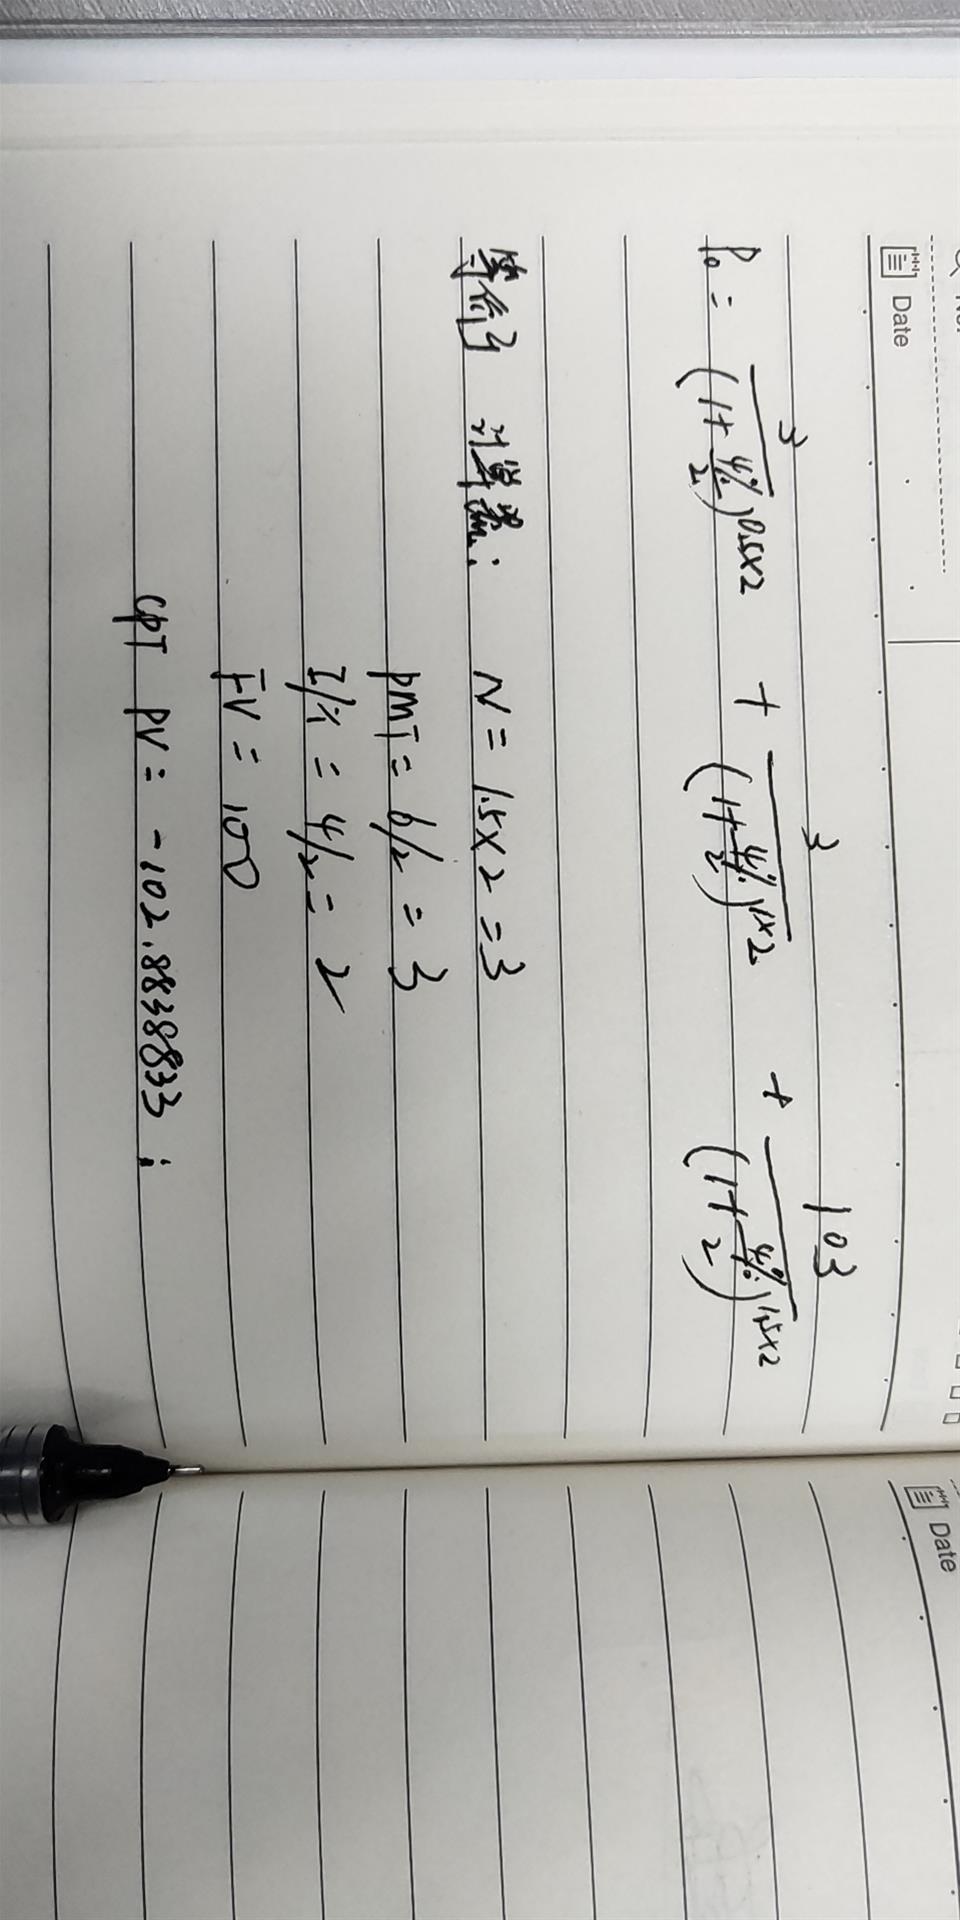 Date
P₀ = 3/(1+4%/2)^0.5×2 + 3/(1+4%/2)^1×2 + 103/(1+4%/2)^1.5×2
等价于 计算器: N = 1.5×2 = 3
PMT = 6/2 = 3
I/Y = 4/2 = 2
FV = 100
CPT PV = -102.8838833;
Date